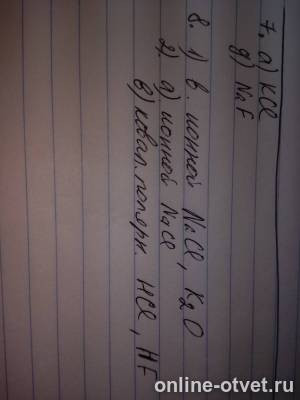 7. а) KCl
д) NaF
8. 1) в. ионной NaCl, K₂O
2) а) ионной NaCl
в) ковал. полярн. HCl, HF
online-otvet.ru